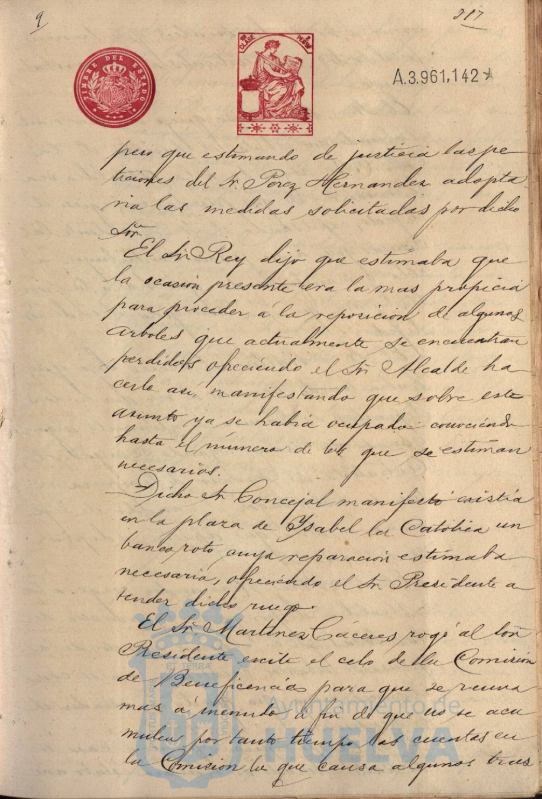 9
217
TIMBRE DEL ESTADO
A.3.961,142
pero que estimando de justicia las pe-
ticiones del Sr. Perez Hernandez adopta-
ria las medidas solicitadas por dicho
Sor.
El Sr. Rey dijo que estimaba que
la ocasion presente era la mas propicia
para proceder a la reposicion de algunos
arboles que actualmente se encuentran
perdidos ofreciendo el Sr. Alcalde ha-
cerlo asi, manifestando que sobre este
asunto ya se habia ocupado conociendo
hasta el número de los que se estiman
necesarios.
Dicho Sr. Concejal manifestó existia
en la plaza de Ysabel la Catolica un
banco roto cuya reparacion estimaba
necesaria, ofreciendo el Sr. Presidente a-
tender dicho ruego.
El Sr. Martinez Cáceres rogó al Sor.
Presidente excite el celo de la Comisión
de Beneficencia para que se reuna
mas a menudo a fin de que no se acu-
mulen por tanto tiempo las cuentas en
la Comision lo que causa algunos tras
Ayuntamiento de
HUELVA